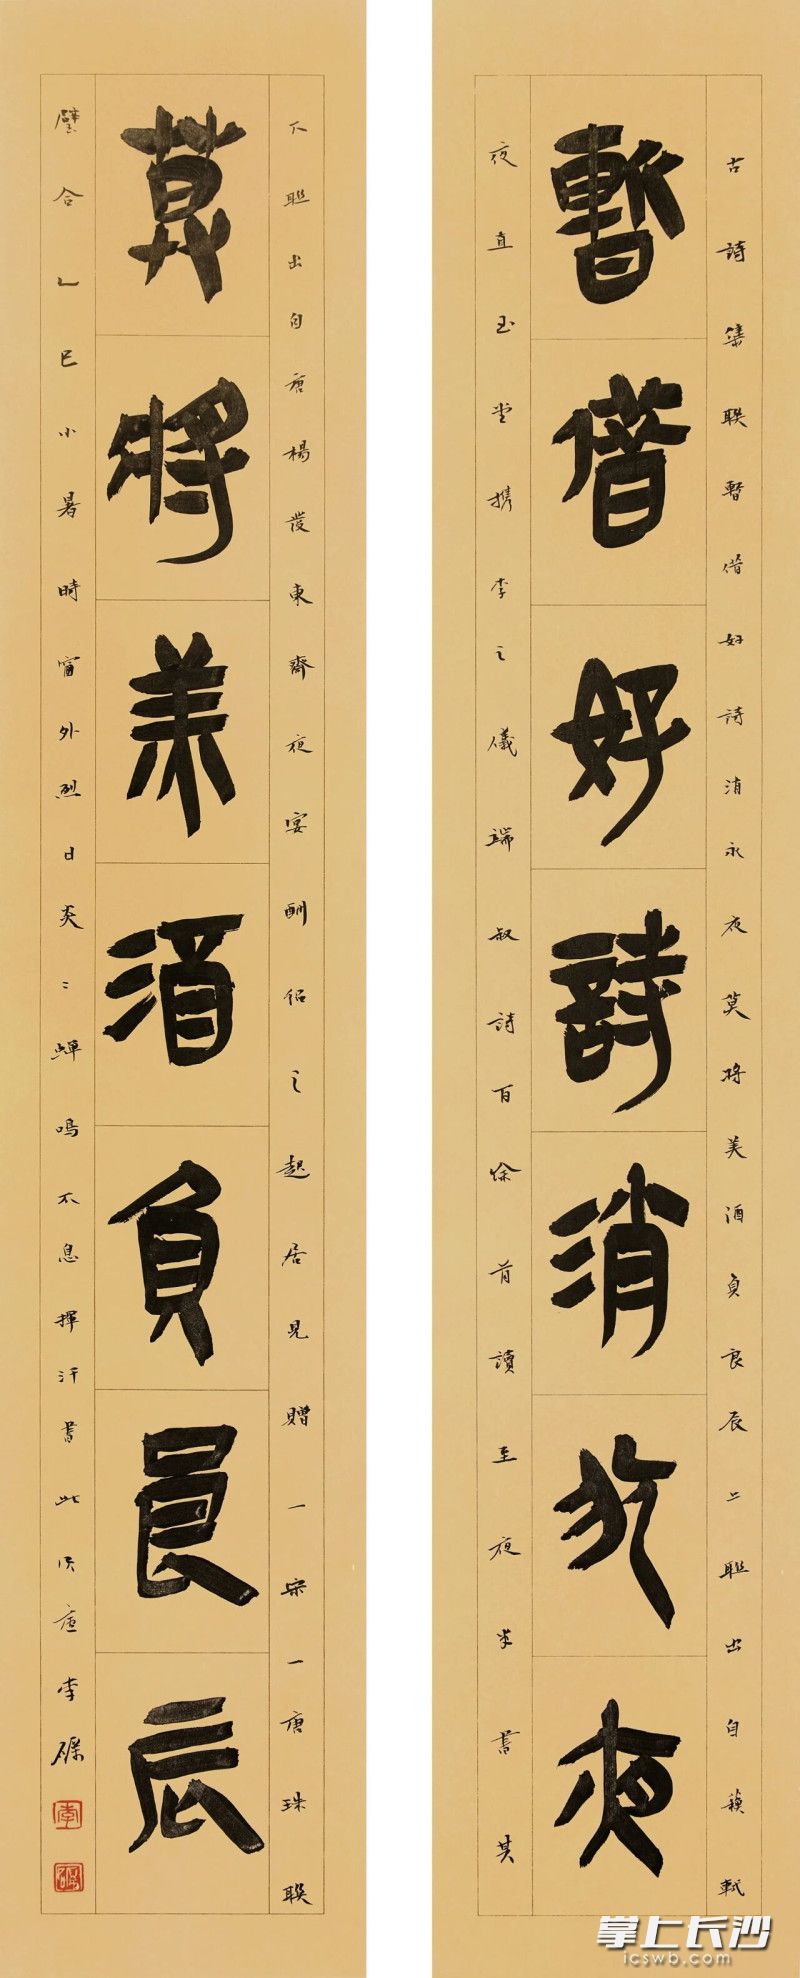 暫借好詩消永夜
古詩集聯暫借好詩消永夜莫將美酒負良辰上聯出自蘇軾
夜直玉堂携李之儀端叔詩百餘首讀至夜半書其
莫將美酒負良辰
下聯出自唐楊發東齋夜宴酬紹之起居見贈一宋一唐珠聯
璧合乙巳小暑時窗外烈日炎炎蟬鳴不息揮汗書此
李磔
掌上长沙
icswb.com